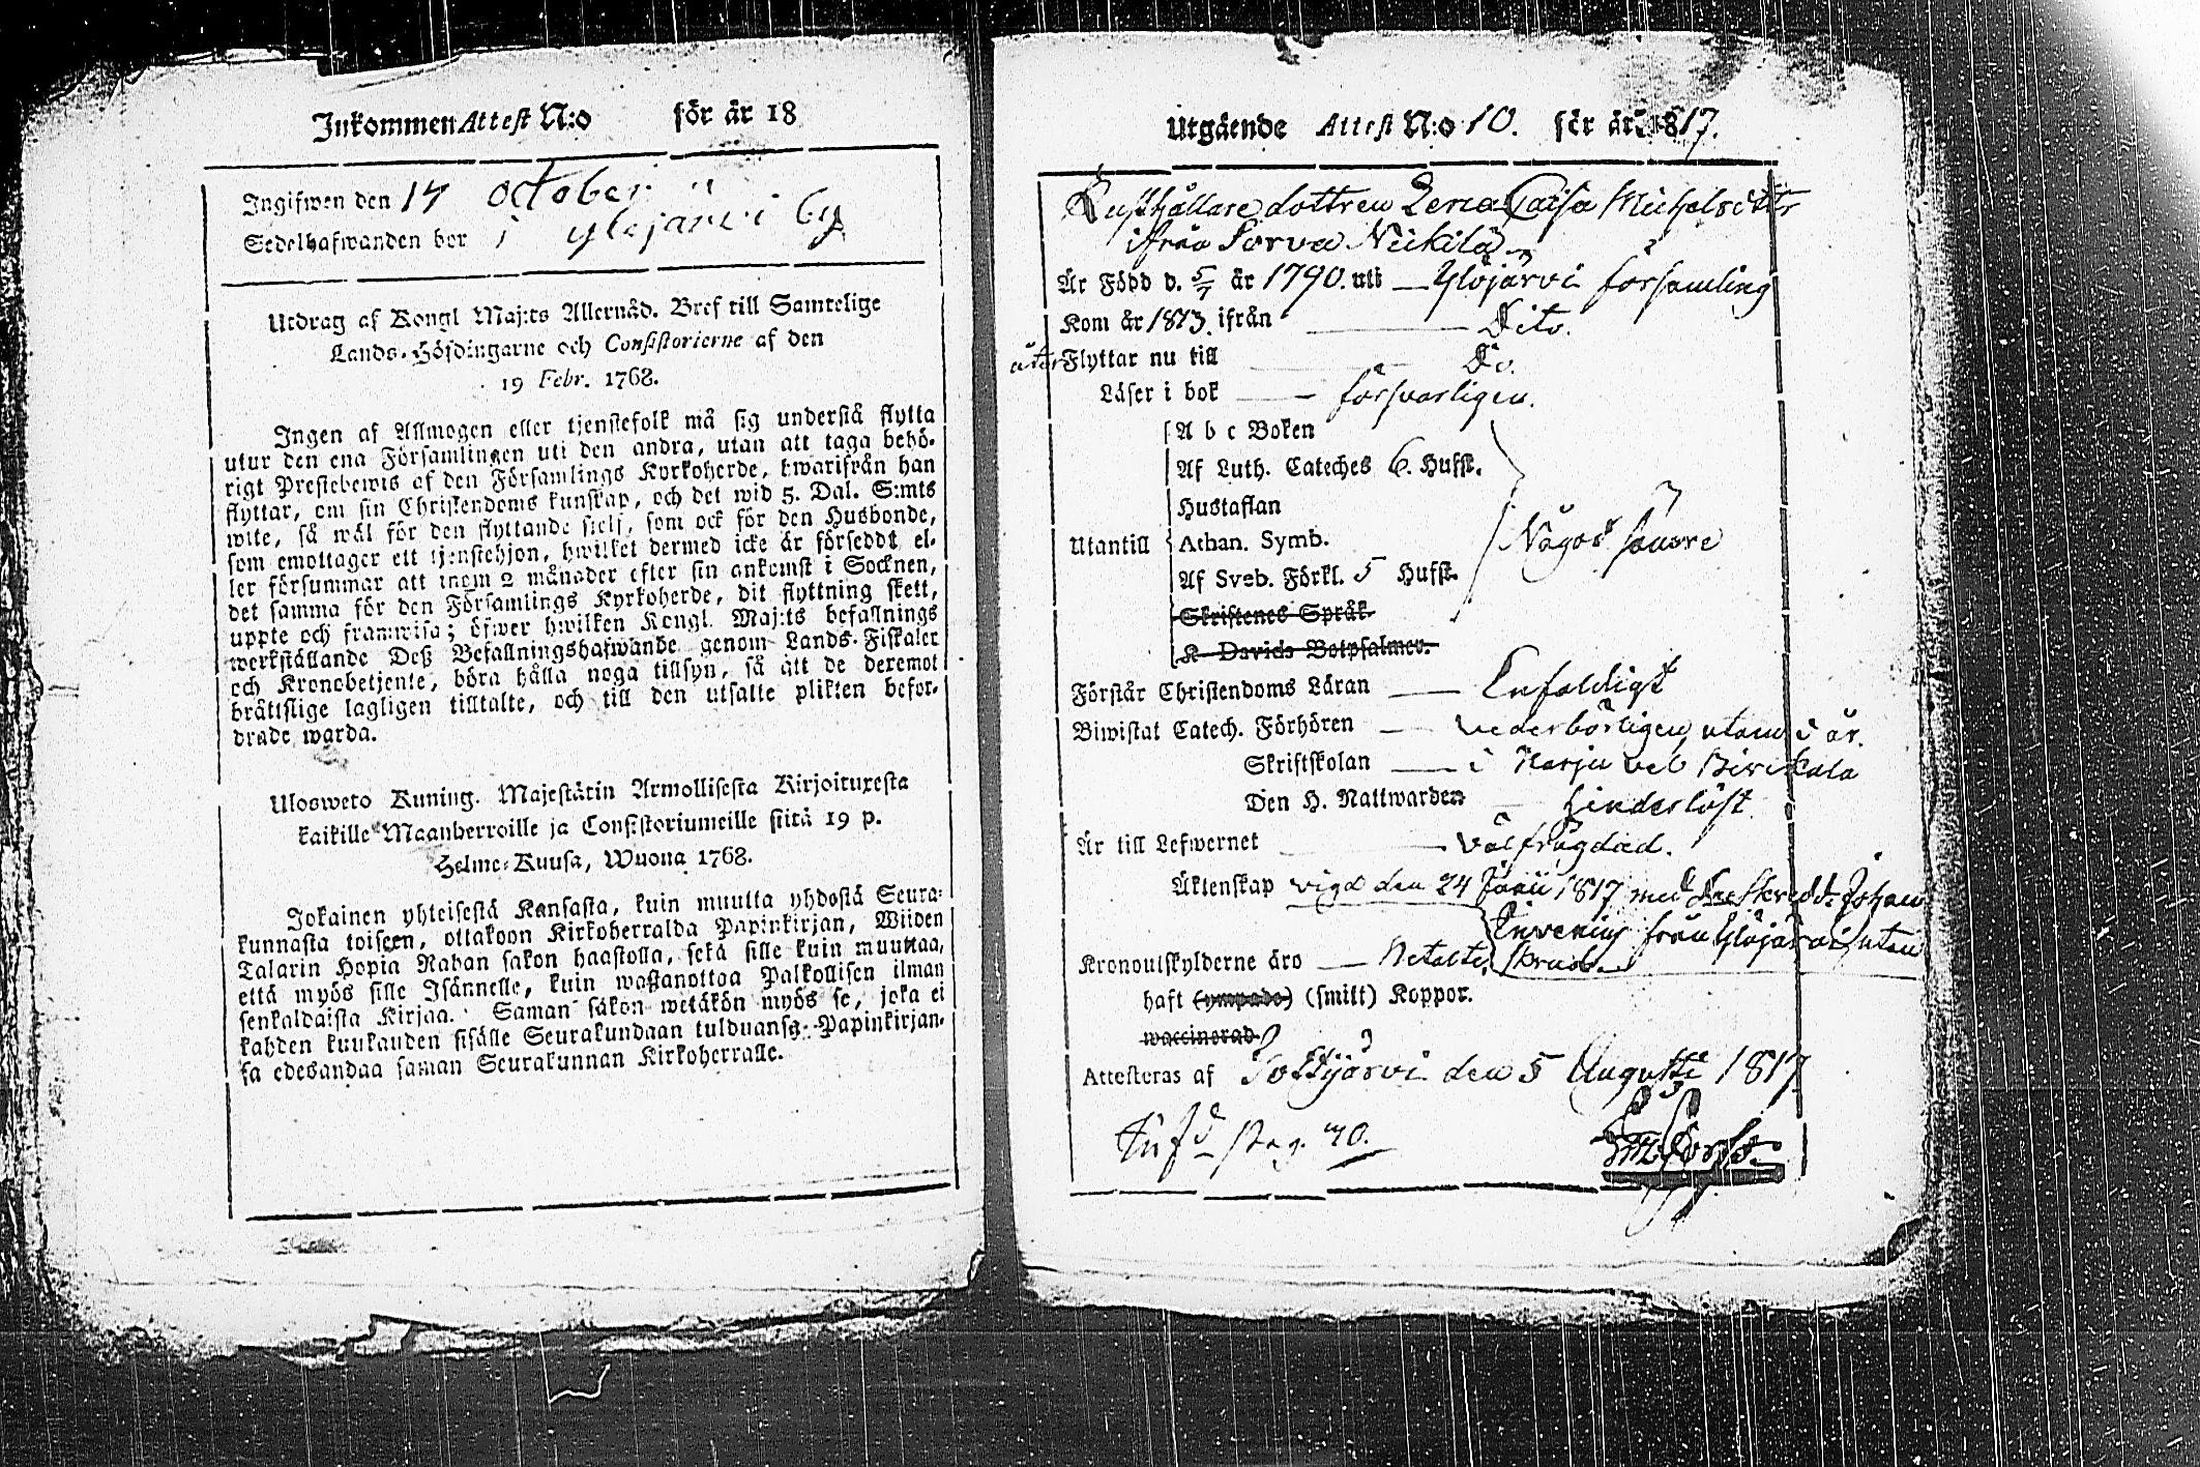 Inkommen Attest N:o för år 18
Ingifwen den 14 October
Sedelhafwanden bor i Ylejärvi by
Utdrag af Kongl Maj:ts Allernåd. Bref till Samtelige
Lands-Höfdingarne och Consistorierne af den
19 Febr. 1768.
Ingen af Allmogen eller tjenstefolk må sig understå flytta
utur den ena Församlingen uti den andra, utan att taga behö-
rigt Prestebewis af den Församlings Kyrkoherde, hwarifrån han
flyttar, om sin Christendoms kunskap, och det wid 5. Dal. S:mts
wite, så wäl för den flyttande sielf, som ock för den Husbonde,
som emottager ett tjenstehjon, hwilket dermed icke är förseddt, el-
ler försummar att inom 2 månader efter sin ankomst i Socknen,
det samma för den Församlings Kyrkoherde, dit flyttning skett,
uppte och framwisa; öfwer hwilken Kongl. Maj:ts befallnings
werkställande Deß Befallningshafwande genom Lands-Fiskaler
och Kronobetjente, böra hålla noga tillsyn, så att de deremot
bråttslige lagligen tilltalte, och till den utsatte plikten befor-
drade warda.
Ulosweto Kuning. Majestätin Armollisesta Kirjoituxesta
kaikille Maanherroille ja Consistoriumeille siitä 19 p.
Helme-Kuusa, Wuona 1768.
Jokainen yhteisestä Kansasta, kuin muutta yhdostä Seura-
kunnasta toiseen, ottakoon Kirkoherralda Papinkirjan, Wiiden
Talarin Hopia Rahan sakon haastolla, sekä sille kuin muuttaa,
että myös sille Isännelle, kuin wastanottaa Palkollisen ilman
senkaldaista Kirjaa. Saman sakon wetäkön myös se, joka ei
kahden kuukauden sisälle Seurakundaan tulduansa Papinkirjan-
sa edesandaa saman Seurakunnan Kirkoherralle.
Utgående Attest N:o 10. för år 1817.
Rusthållare dottren Lena Caisa Michelsdttr
ifrån Sorva Neikilä
Är Född d. 5/7 år 1790. uti Ylöjärvi församling
Kom år 1813. ifrån Dito.
åter Flyttar nu till Do.
Läser i bok försvarligen.
A b c Boken
Af Luth. Cateches 6. Hufst.
Hustaflan
Utantill Athan. Symb. Något sämre
Af Sveb. Förkl. 5 Hufst.
Skriftenes Språk
K Davids Botpsalmer.
Förstår Christendoms Läran Enfaldigt
Biwistat Catech. Förhören vederbörligen, utom i år.
Skriftskolan i Harju vel Birckala
Den H. Nattwarden hinderlöst
Är till Lefwernet välfrägdad.
Äktenskap vigd den 24 Junii 1817 med Johan
från Ylöjärvi, utan
Kronoutskylderne äro Betalte,
haft (ympade) (smitt) Koppor.
waccinerad
Attesteras af Tottijärvi den 5 Augusti 1817
pag. 40.